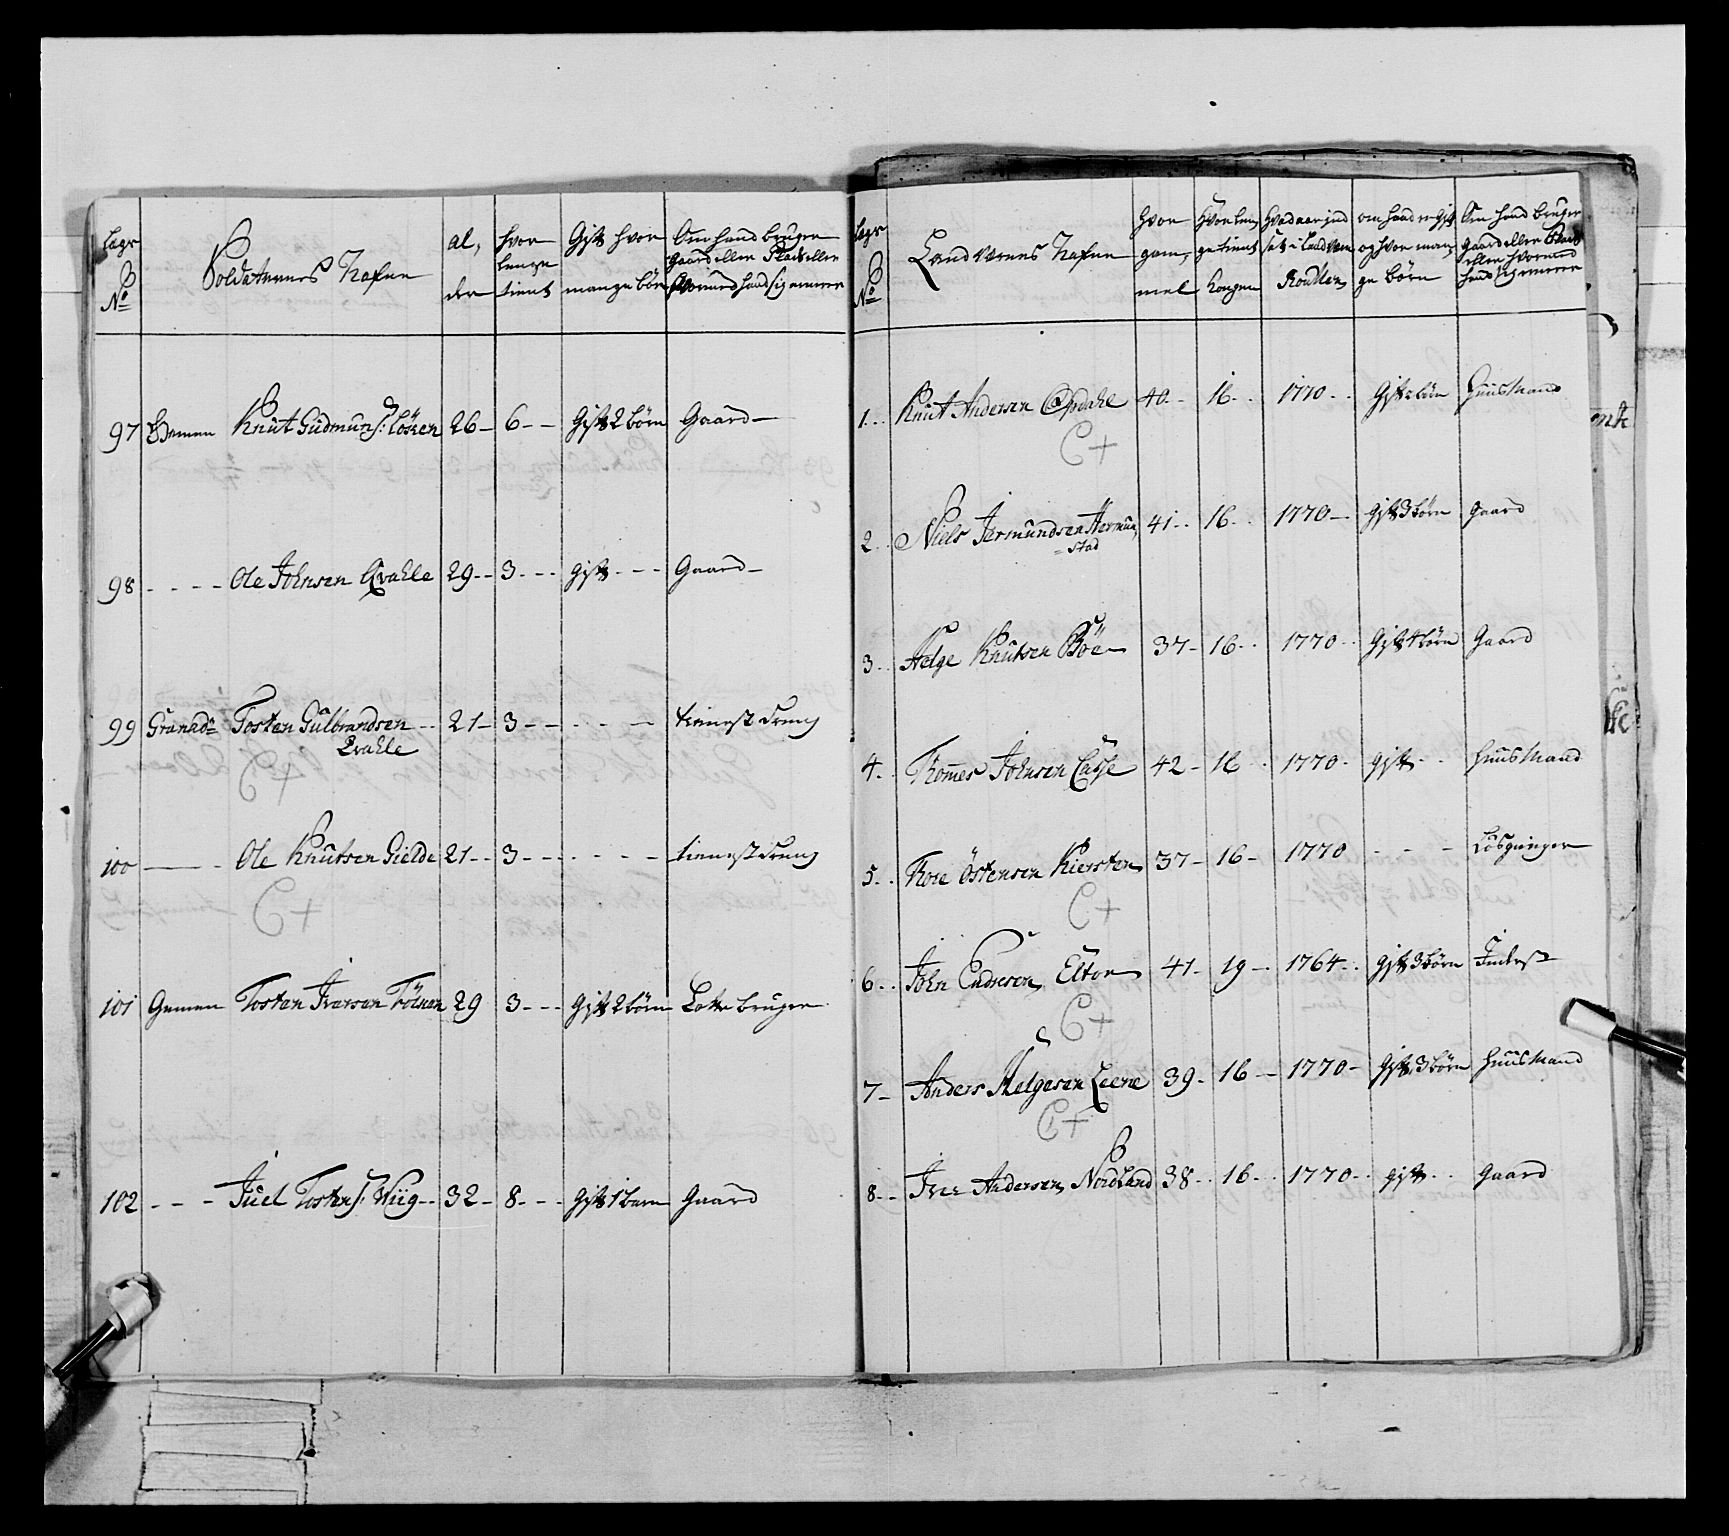 Lægs No
Soldaternes Nafne
al,
der
hvor
lenge
tient
Gift hvor
mange børn
Om hand bruger
Gaard eller Plads eller
hvormed hand sig ernærer
97 Gemen Knut Gudmuns: Løken 26 - 6 - - Gift 2 børn Gaard -
98 - - - - Ole Johnsen Qvahle 29 - - 3 - - - gift - - - Gaard -
99 Granad: Tosten Gulbrandsen - - 21 - 3 - - - - - tienestdreng
Qvahle
100 Ole Knutsen Gielde 21 - - 3 - - - - - - tienestdreng
101 Gemen Tosten Iversen Følnæn 29 3 - - - Gift 2 børn Lotte bruger
102 - - - Juel Tostens: Wiig - - 32 - 8 - - - Gift 1 barn Gaard
Lægs No
Landværnes Nafne
hvor
gam,
mel
Hvor len,
ge tient
Kongen
Hvad aar ind
sat i Landværn
Roullen
om hand er gift
og hvor man,
ge børn
Om hand bruger
Gaard eller Plads
eller hvormed
hand sig ernærer
1 - - Knut Andersen Opdahl 40 - - 16 - - 1770 - - Gift 2 børn Huusmand
2 - - Niels Jermundsen Hermun, 41 - - 16 - - 1770 - - gift 3 børn gaard
= stad
3 - - Helge Knutsen Böe 37 - 16 - - 1770 - - Gift 4 børn Gaard
4 - - Tomes Johnsen 42 - 16 - 1770 - gift - - huusmand
5 - - Tore Östensen Kiersten 37 - 16 - 1770 - - - Løsgienger
6 - - John Endresen Elton 41 - 19 - 1764 - - gift 3 børn Inderst
7 - Anders Helgesen Leene 39 - 16 - - 1770 - Gift 3 børn huusmand
8 - - Iver Andersen Nordland 38 - - 16 - - 1770 - - gift - - gaard